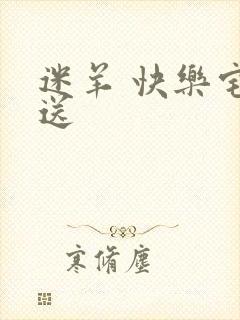 迷羊 快樂宅
送
寒脩塵